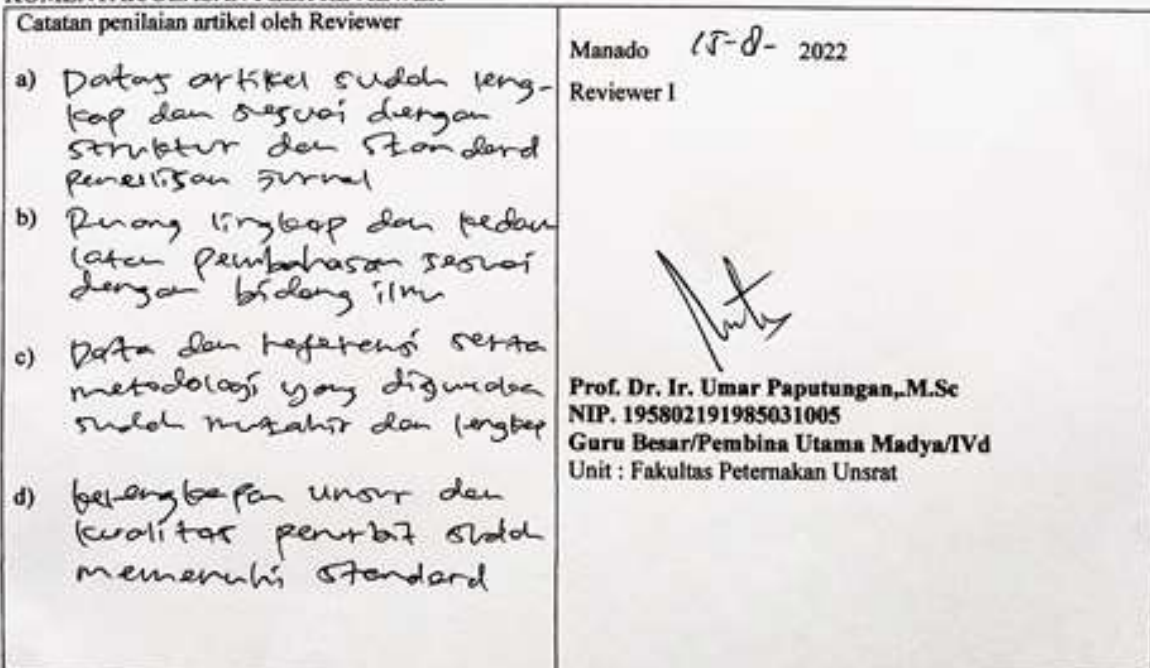 Catatan penilaian artikel oleh Reviewer
a) Datas artikel sudah leng-
kap dan sesuai dengan
struktur dan standard
penulisan Jurnal
b) Ruang lingkup dan kedan
laman pembahasan sesuai
dengan bidang ilmu
c) Data dan referensi serta
metodologi yang digunakan
sudah mutahir dan lengkap
d) kelengkapan unsur dan
kualitas penerbit sudah
memenuhi standard
Manado 15-8- 2022
Reviewer I
Prof. Dr. Ir. Umar Paputungan,.M.Sc
NIP. 195802191985031005
Guru Besar/Pembina Utama Madya/IVd
Unit : Fakultas Peternakan Unsrat